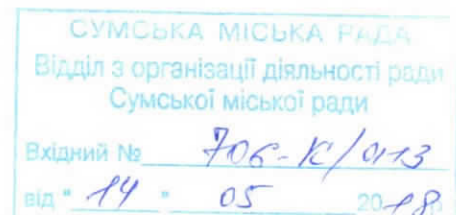 СУМСЬКА МІСЬКА РАДА
Відділ з організації діяльності ради
Сумської міської ради
Вхідний № 706-К/013
від " 14 " 05 2018р